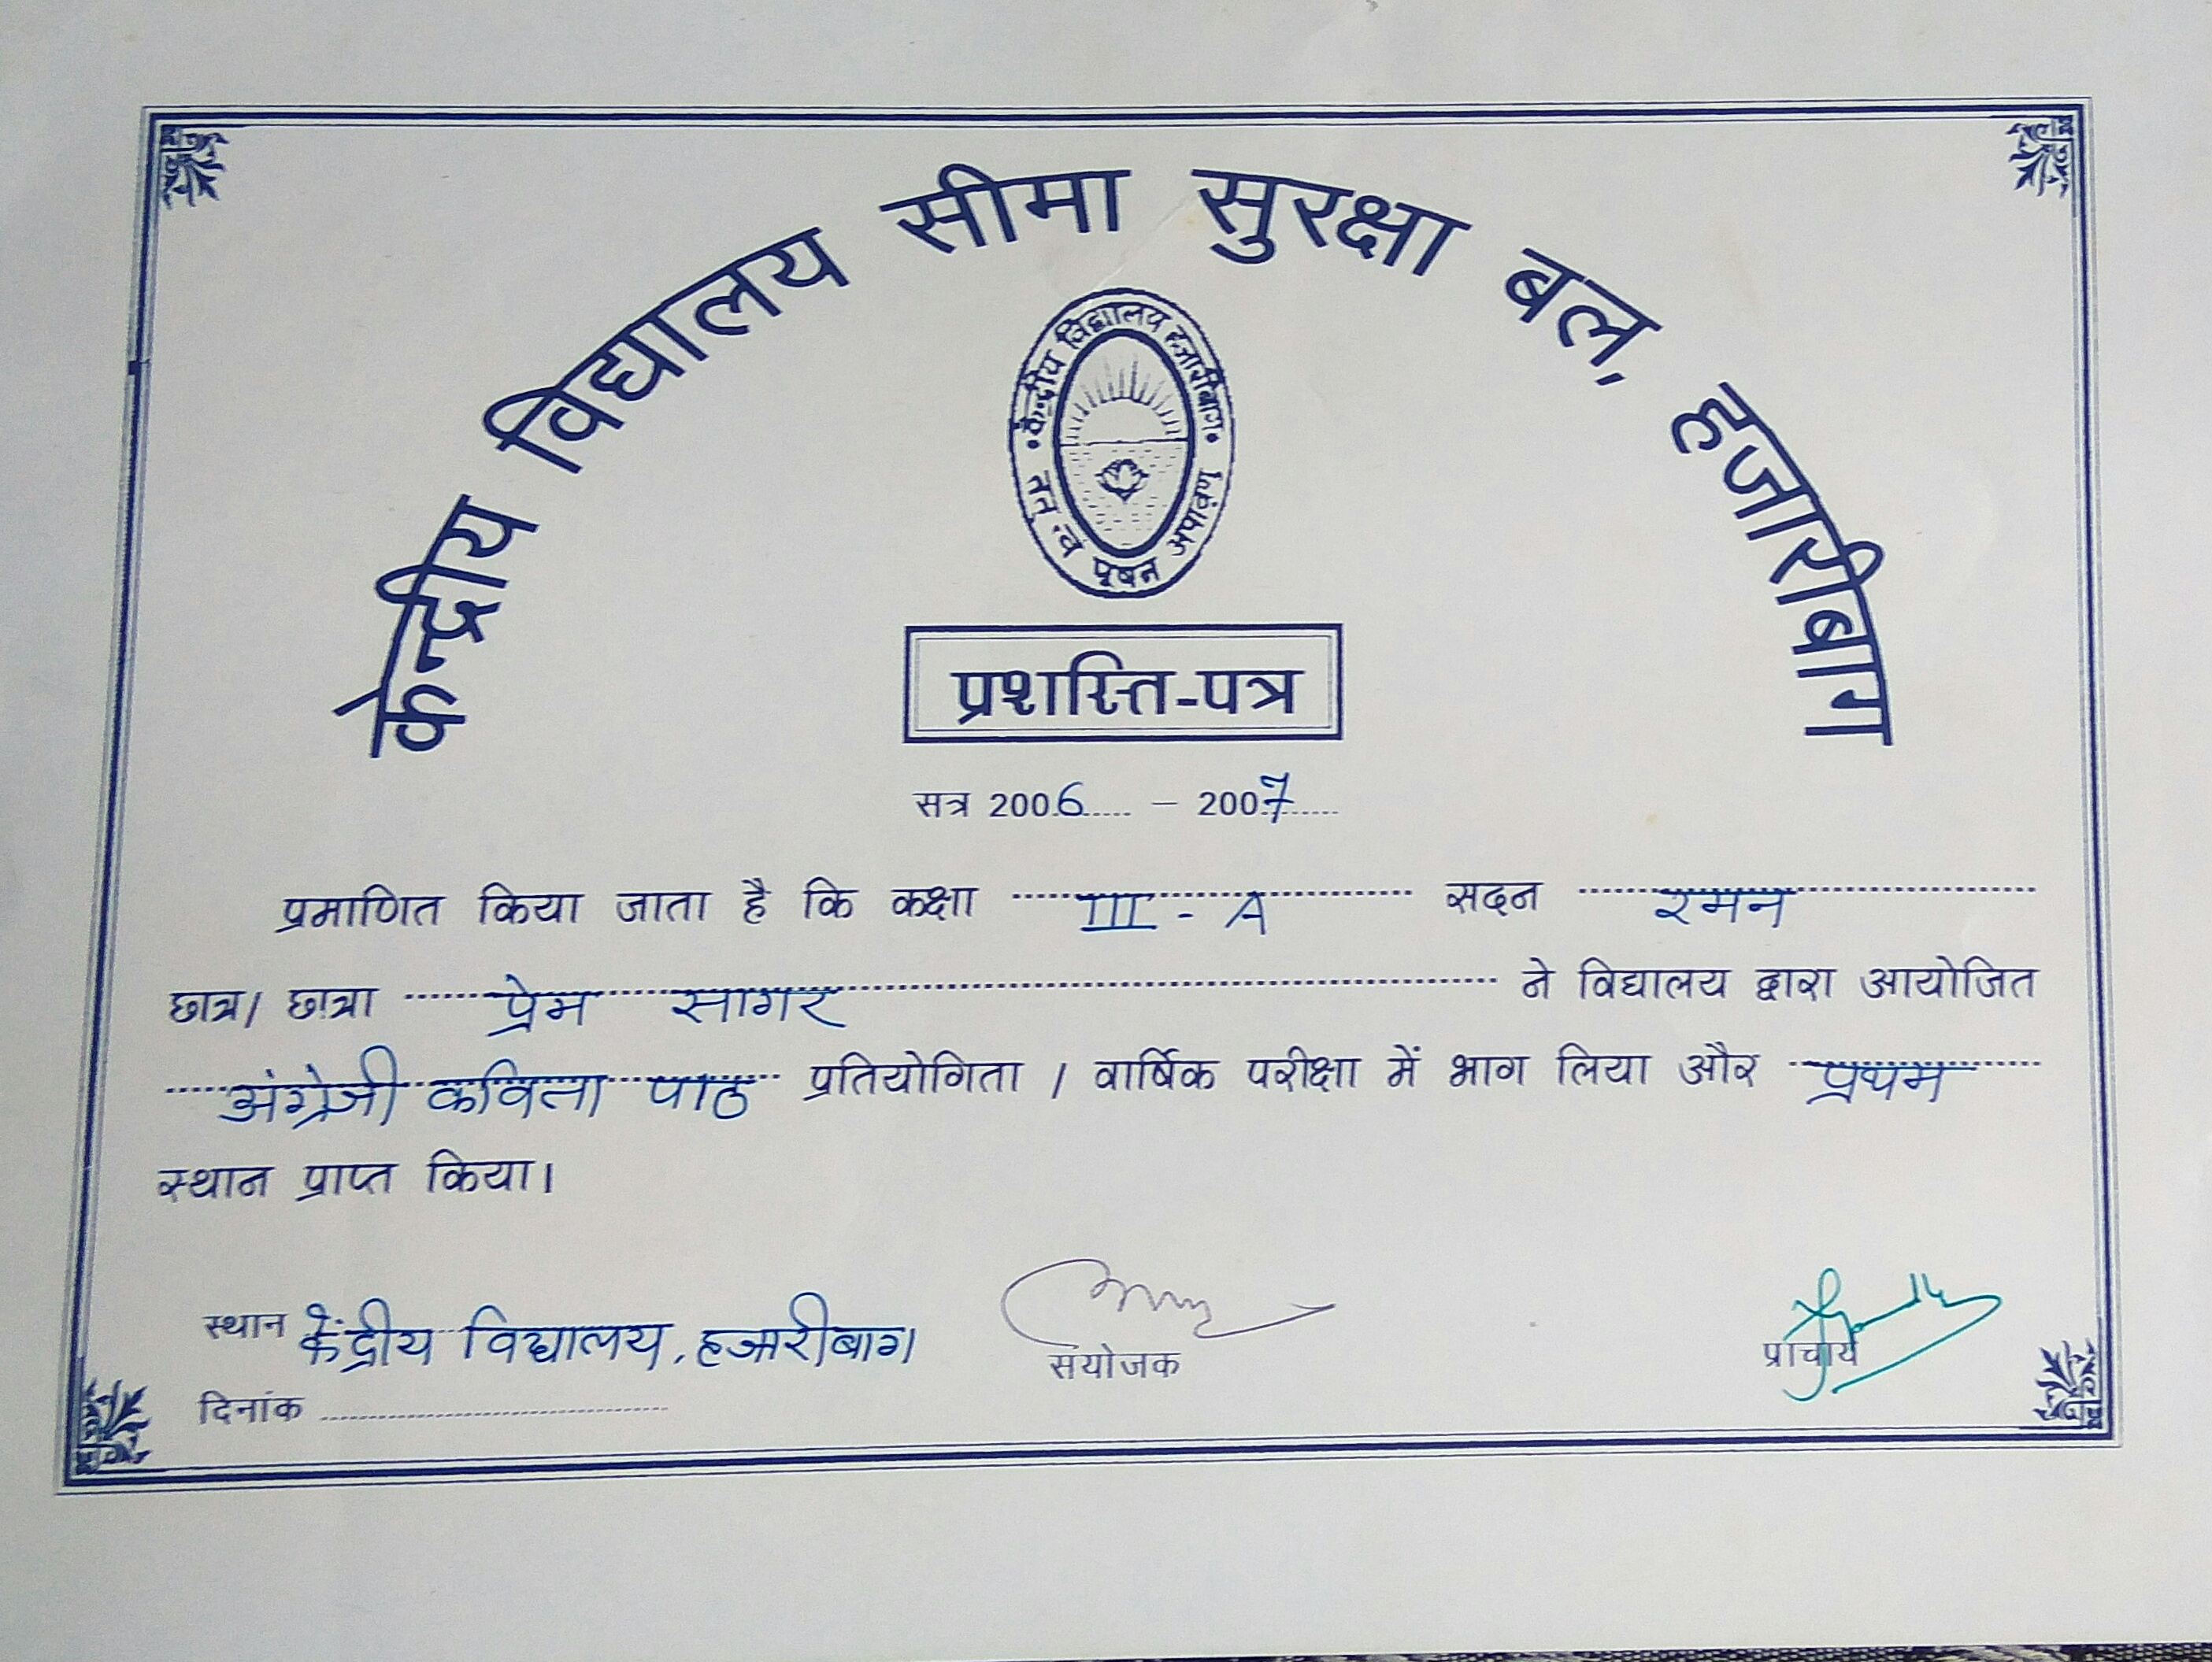 केन्द्रीय विद्यालय सीमा सुरक्षा बल, हजारीबाग
केन्द्रीय विद्यालय हजारीबाग
तत् त्वं पूषन अपावृणु
प्रशस्ति-पत्र
सत्र 2006 – 2007
प्रमाणित किया जाता है कि कक्षा III - A सदन रमन
छात्र/ छात्रा प्रेम सागर ने विद्यालय द्वारा आयोजित
अंग्रेजी कविता पाठ प्रतियोगिता / वार्षिक परीक्षा में भाग लिया और प्रथम
स्थान प्राप्त किया।
स्थान केंद्रीय विद्यालय, हजारीबाग
संयोजक
प्राचार्य
दिनांक